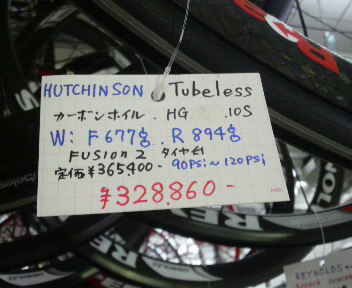 HUTCHINSON Tubeless
カーボンホイル. HG 10S
W: F 677g. R 894g
FUSION 2 タイヤ付
定価¥365400- 90PSi~120PSi
¥328860-
REYNOLDS